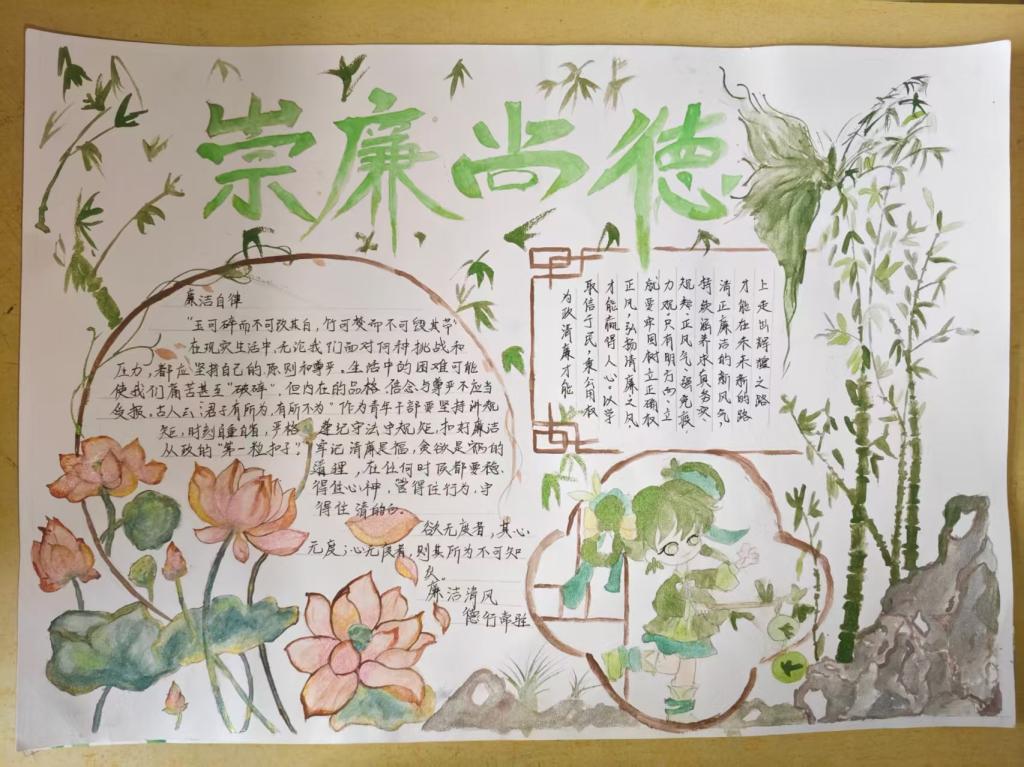 崇廉尚德
廉洁自律
"玉可碎而不可改其白，竹可焚而不可毁其节"
在现实生活中，无论我们面对何种挑战和
压力，都应坚持自己的原则和尊严。生活中的困难可能
使我们痛苦甚至"破碎"，但内在的品格、信念与尊严不应当
受损，古人云："君子有所为，有所不为"作为青年干部要坚持讲规
矩，时刻自重自省，严格遵纪守法守规矩，扣好廉洁
从政的"第一粒扣子"。牢记清廉是福，贪欲是祸的
道理，在任何时候都要稳
得住心神，管得住行为，守
得住清白。
欲无度者，其心
无度；心无度者，则其所为不可知
矣。
廉洁清风
德行常驻
为政清廉才能
取信于民，秉公用权
才能赢得人心。以学
正风，弘扬清廉之风
就要牢固树立正确权
力观。只有明方向、立
规矩、正风气、强免疫，
持续涵养求真务实、
清正廉洁的新风气，
才能在未来新的路
上走出辉煌之路